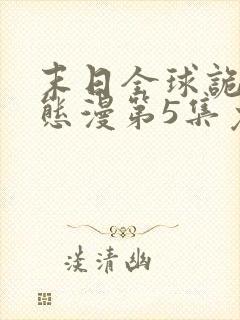 末日全球詭
態漫第5集
淡清幽